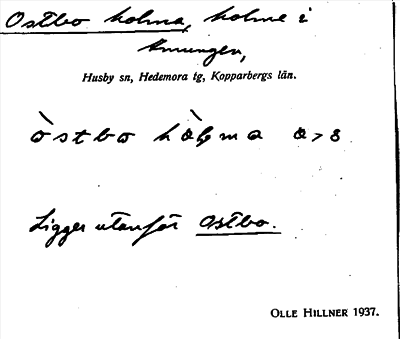 Ostbo holma, holme i
Amungen,
Husby sn, Hedemora tg, Kopparbergs län.
òstbo hòḷma a>ɜ
Ligger utanför Ostbo.
OLLE HILLNER 1937.